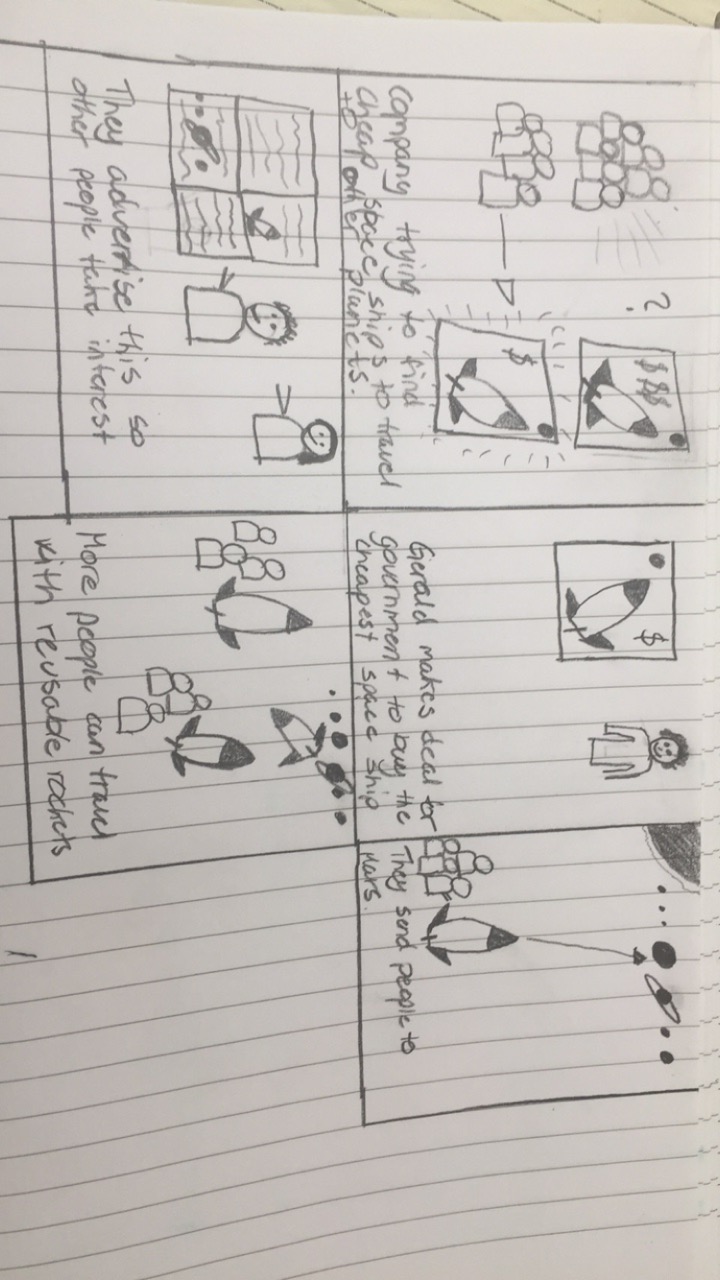 ?
$$$
$
Company trying to find
cheap space ships to travel
to other planets.
$
Gerald makes deal for
government to buy the
cheapest space ship
They send people to
Mars.
They advertise this so
other people take interest
More people can travel
with reusable rockets